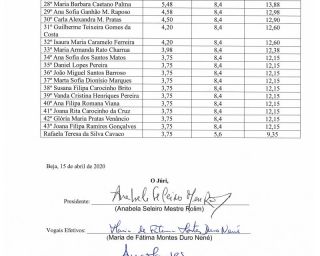 28ª Maria Barbara Caetano Palma 5,48 8,4 13,88
29ª Ana Sofia Ganhão M. Raposo 4,58 8,4 12,98
30ª Carla Alexandra M. Pratas 4,50 8,4 12,90
31º Guilherme Teixeira Gomes da Costa 4,20 8,4 12,60
32ª Isaura Maria Caramelo Ferreira 4,20 8,4 12,60
33ª Maria Armanda Rato Charrua 3,98 8,4 12,38
34ª Ana Sofia dos Santos Matos 3,75 8,4 12,15
35º Daniel Lopes Pereira 3,75 8,4 12,15
36º João Miguel Santos Barroso 3,75 8,4 12,15
37ª Marta Sofia Dionísio Marques 3,75 8,4 12,15
38ª Susana Filipa Carocinho Brito 3,75 8,4 12,15
39ª Vanda Cristina Henriques Pereira 3,75 8,4 12,15
40ª Ana Filipa Romana Viana 3,75 8,4 12,15
41ª Joana Rita Carocinho da Cruz 3,75 8,4 12,15
42ª Glória Maria Pratas Venâncio 3,75 8,4 12,15
43ª Joana Filipa Ramires Gonçalves 3,75 8,4 12,15
Rafaela Teresa da Silva Cavaco 3,75 5,6 9,35
Beja, 15 de abril de 2020
O Júri,
Presidente:
(Anabela Seleiro Mestre Rolim)
Vogais Efetivos:
(Maria de Fátima Montes Duro Nené)